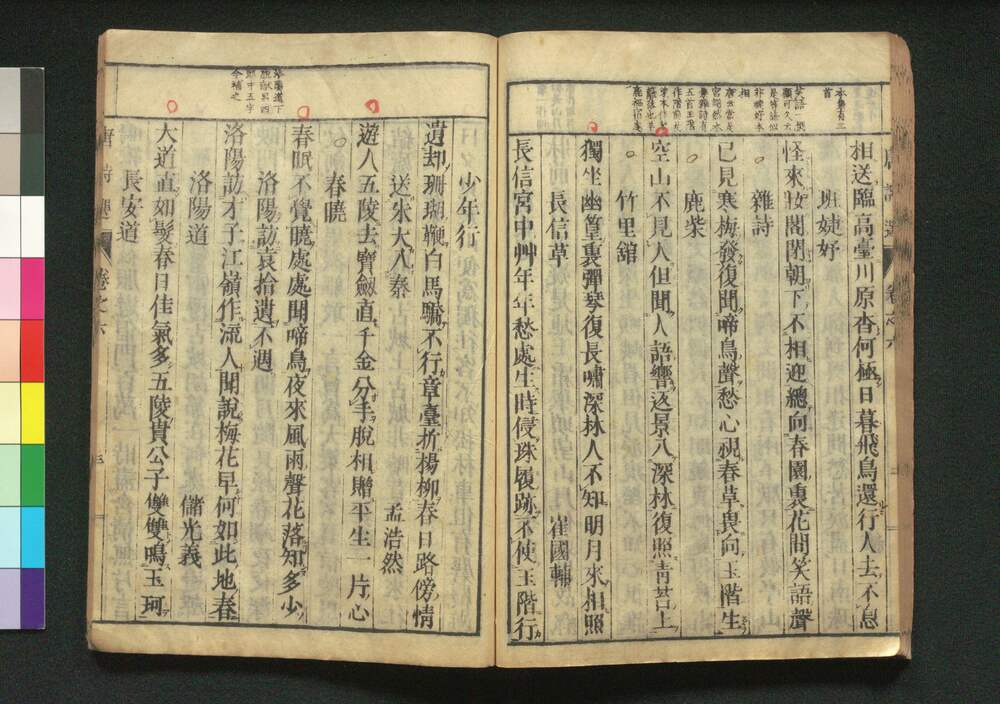 本集有三
首
相送臨高臺川原杳何極日暮飛鳥還行人去不息
班婕妤
怪來妝閣閉朝下不相迎總向春園裏花間笑語聲
雜詩
已見寒梅發復聞啼鳥聲愁心視春草畏向玉階生
鹿柴
空山不見人但聞人語響返景入深林復照青苔上
竹里館
獨坐幽篁裏彈琴復長嘯深林人不知明月來相照
長信草 崔國輔
長信宮中艸年年愁處生時侵珠履跡不使玉階行
少年行
遺却珊瑚鞭白馬驕不行章臺折楊柳春日路傍情
送朱大入秦 孟浩然
遊人五陵去寶劔直千金分手脫相贈平生一片心
春曉
春眠不覺曉處處聞啼鳥夜來風雨聲花落知多少
洛陽道下
應獻呂四
郎中五字
今補之
洛陽訪袁拾遺不遇
洛陽訪才子江嶺作流人聞說梅花早何如此地春
洛陽道 儲光義
大道直如髮春日佳氣多五陵貴公子雙雙鳴玉珂
長安道
唐詩選 卷之六 三